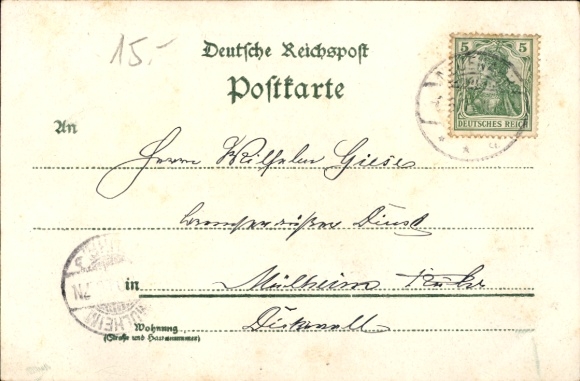 15.-
Deutsche Reichspost
Postkarte
5 5
DEUTSCHES REICH
An
Herrn Wilhelm Giese
außer Dienst
in Mülheim Ruhr
Wohnung
(Straße und Hausnummer)
Dickswall